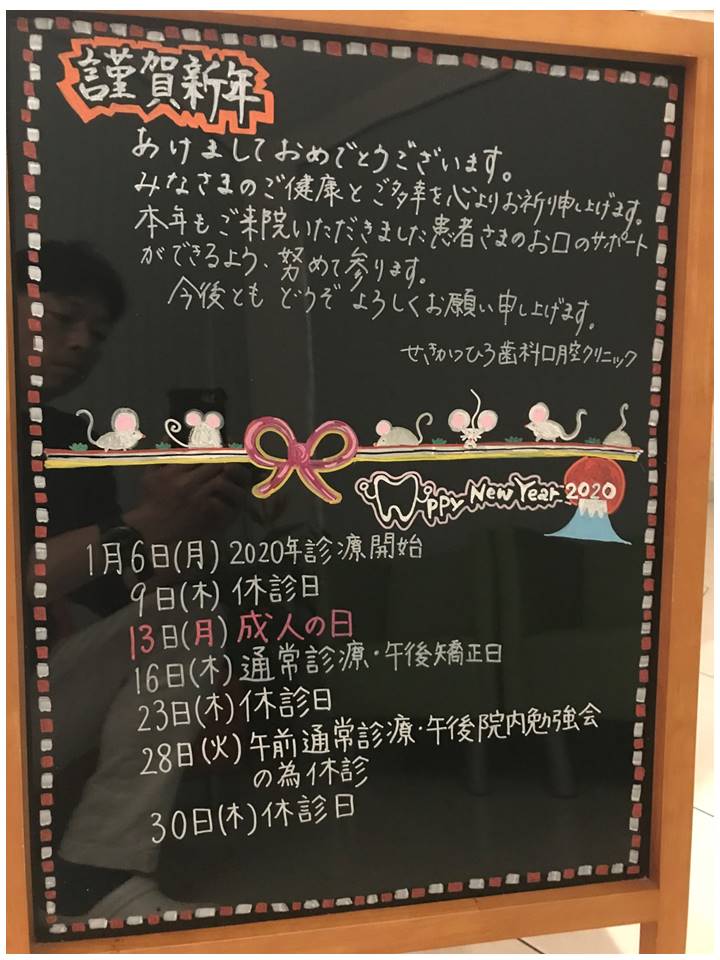 謹賀新年
あけましておめでとうございます。
みなさまのご健康とご多幸を心よりお祈り申し上げます。
本年もご来院いただきました患者さまのお口のサポート
ができるよう、努めて参ります。
今後とも どうぞ よろしくお願い申し上げます。
せきかつひろ歯科口腔クリニック
ppy New Year 2020
1月6日(月) 2020年診療開始
9日(木) 休診日
13日(月) 成人の日
16日(木) 通常診療・午後矯正日
23日(木) 休診日
28日(火) 午前通常診療・午後院内勉強会
の為休診
30日(木) 休診日